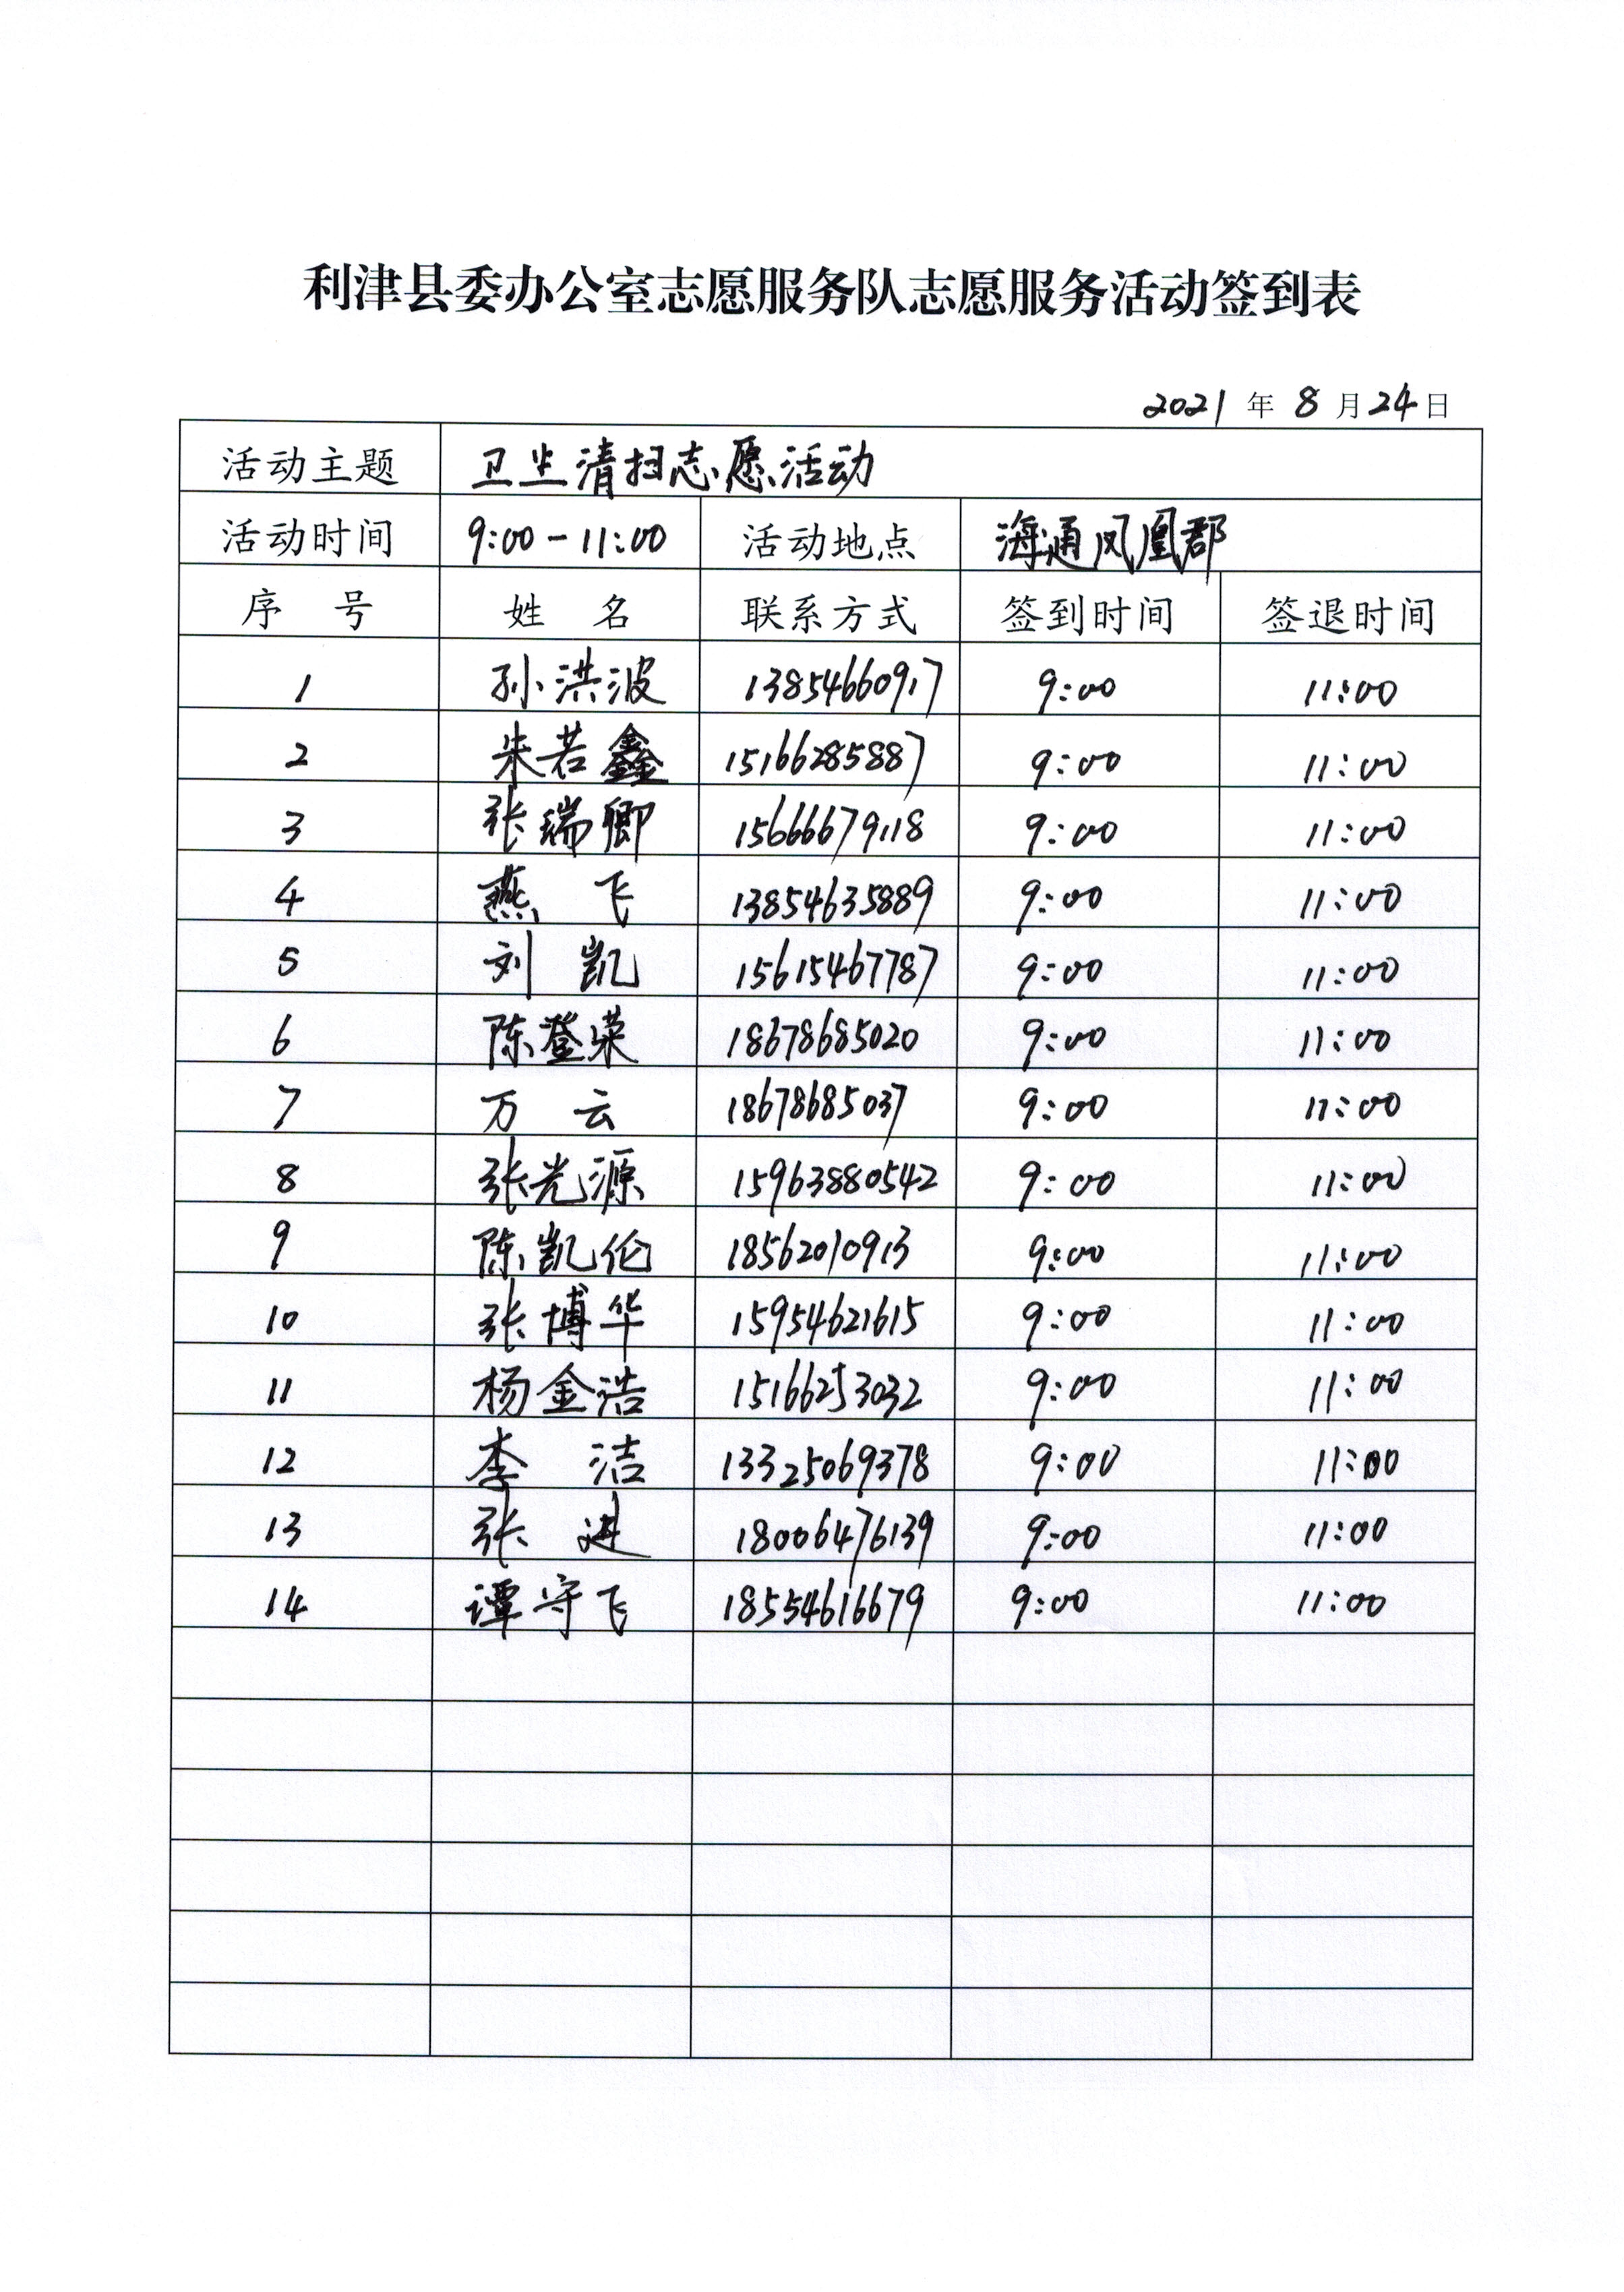 利津县委办公室志愿服务队志愿服务活动签到表
2021 年 8 月 24 日
活动主题 卫生清扫志愿活动
活动时间 9:00-11:00 活动地点 海通凤凰郡
序 号 姓 名 联系方式 签到时间 签退时间
1 孙洪波 13854660917 9:00 11:00
2 朱若鑫 15166285887 9:00 11:00
3 张瑞卿 15666679118 9:00 11:00
4 燕 飞 13854635889 9:00 11:00
5 刘 凯 15615467787 9:00 11:00
6 陈登荣 18678685020 9:00 11:00
7 万 云 18678685037 9:00 11:00
8 张光源 15963880542 9:00 11:00
9 陈凯伦 18562010913 9:00 11:00
10 张博华 15954621615 9:00 11:00
11 杨金浩 15166253032 9:00 11:00
12 李 洁 13325069378 9:00 11:00
13 张 进 18006476139 9:00 11:00
14 谭守飞 18554616679 9:00 11:00